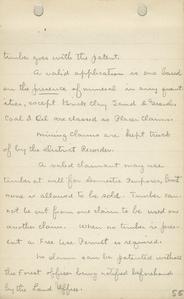 timber goes with the patent.
A valid application is one based
on the presence of mineral in any quant
ities, except Brick Clay Sand & Gravel.
Coal & Oil are classed as Placer Claims.
Mining claims are kept track
of by the District Recorder.
A valid claimant may use
timber at will for domestic purposes, but
none is allowed to be sold. Timber can
not be cut from one claim to be used on
another claim. When no timber is pres-
ent a Free Use Permit is required.
No claim can be patented without
the Forest officer being notified beforehand
by the Land Office.
55